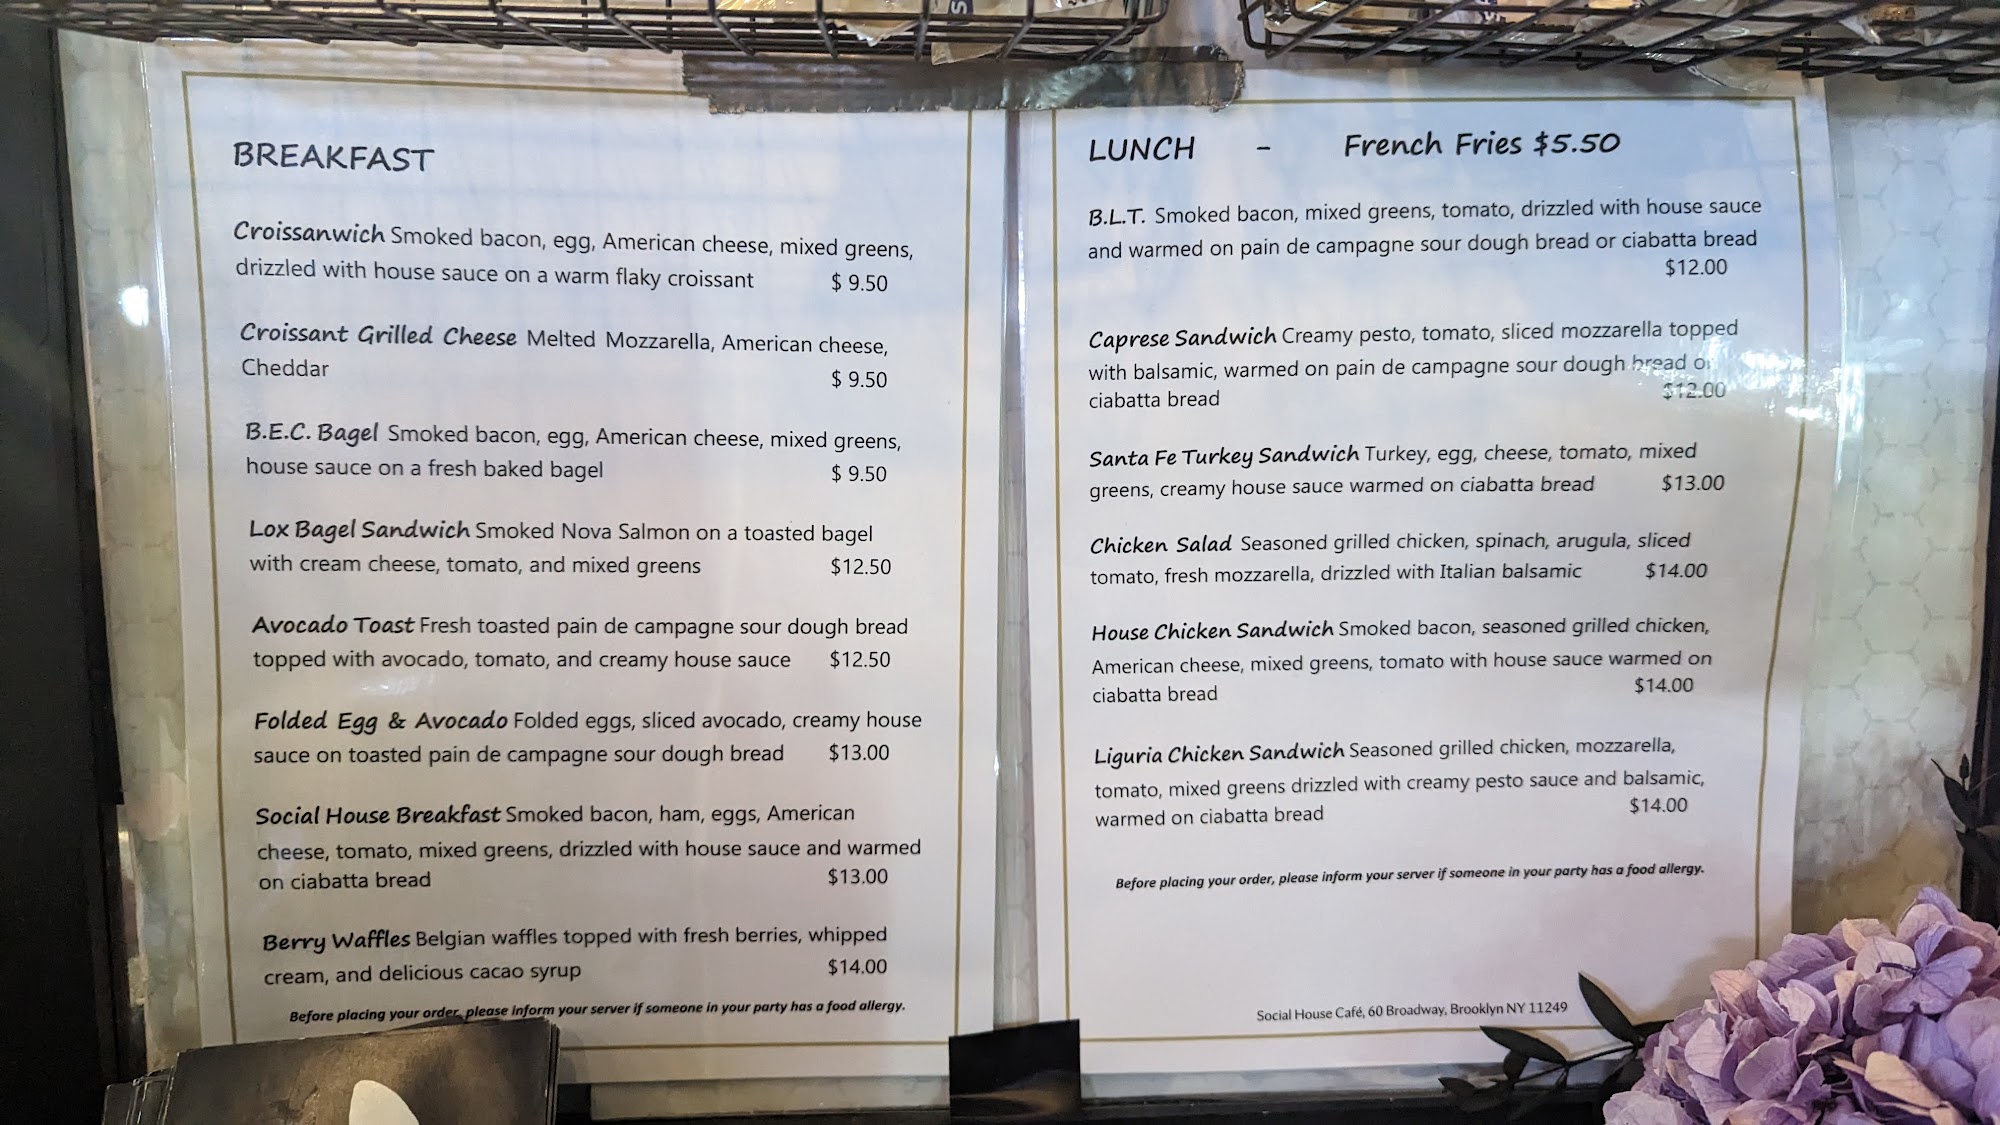 BREAKFAST
Croissanwich Smoked bacon, egg, American cheese, mixed greens,
drizzled with house sauce on a warm flaky croissant $ 9.50
Croissant Grilled Cheese Melted Mozzarella, American cheese,
Cheddar $ 9.50
B.E.C. Bagel Smoked bacon, egg, American cheese, mixed greens,
house sauce on a fresh baked bagel $ 9.50
Lox Bagel Sandwich Smoked Nova Salmon on a toasted bagel
with cream cheese, tomato, and mixed greens $12.50
Avocado Toast Fresh toasted pain de campagne sour dough bread
topped with avocado, tomato, and creamy house sauce $12.50
Folded Egg & Avocado Folded eggs, sliced avocado, creamy house
sauce on toasted pain de campagne sour dough bread $13.00
Social House Breakfast Smoked bacon, ham, eggs, American
cheese, tomato, mixed greens, drizzled with house sauce and warmed
on ciabatta bread $13.00
Berry Waffles Belgian waffles topped with fresh berries, whipped
cream, and delicious cacao syrup $14.00
Before placing your order, please inform your server if someone in your party has a food allergy.
LUNCH - French Fries $5.50
B.L.T. Smoked bacon, mixed greens, tomato, drizzled with house sauce
and warmed on pain de campagne sour dough bread or ciabatta bread
$12.00
Caprese Sandwich Creamy pesto, tomato, sliced mozzarella topped
with balsamic, warmed on pain de campagne sour dough bread or
ciabatta bread $12.00
Santa Fe Turkey Sandwich Turkey, egg, cheese, tomato, mixed
greens, creamy house sauce warmed on ciabatta bread $13.00
Chicken Salad Seasoned grilled chicken, spinach, arugula, sliced
tomato, fresh mozzarella, drizzled with Italian balsamic $14.00
House Chicken Sandwich Smoked bacon, seasoned grilled chicken,
American cheese, mixed greens, tomato with house sauce warmed on
ciabatta bread $14.00
Liguria Chicken Sandwich Seasoned grilled chicken, mozzarella,
tomato, mixed greens drizzled with creamy pesto sauce and balsamic,
warmed on ciabatta bread $14.00
Before placing your order, please inform your server if someone in your party has a food allergy.
Social House Café, 60 Broadway, Brooklyn NY 11249